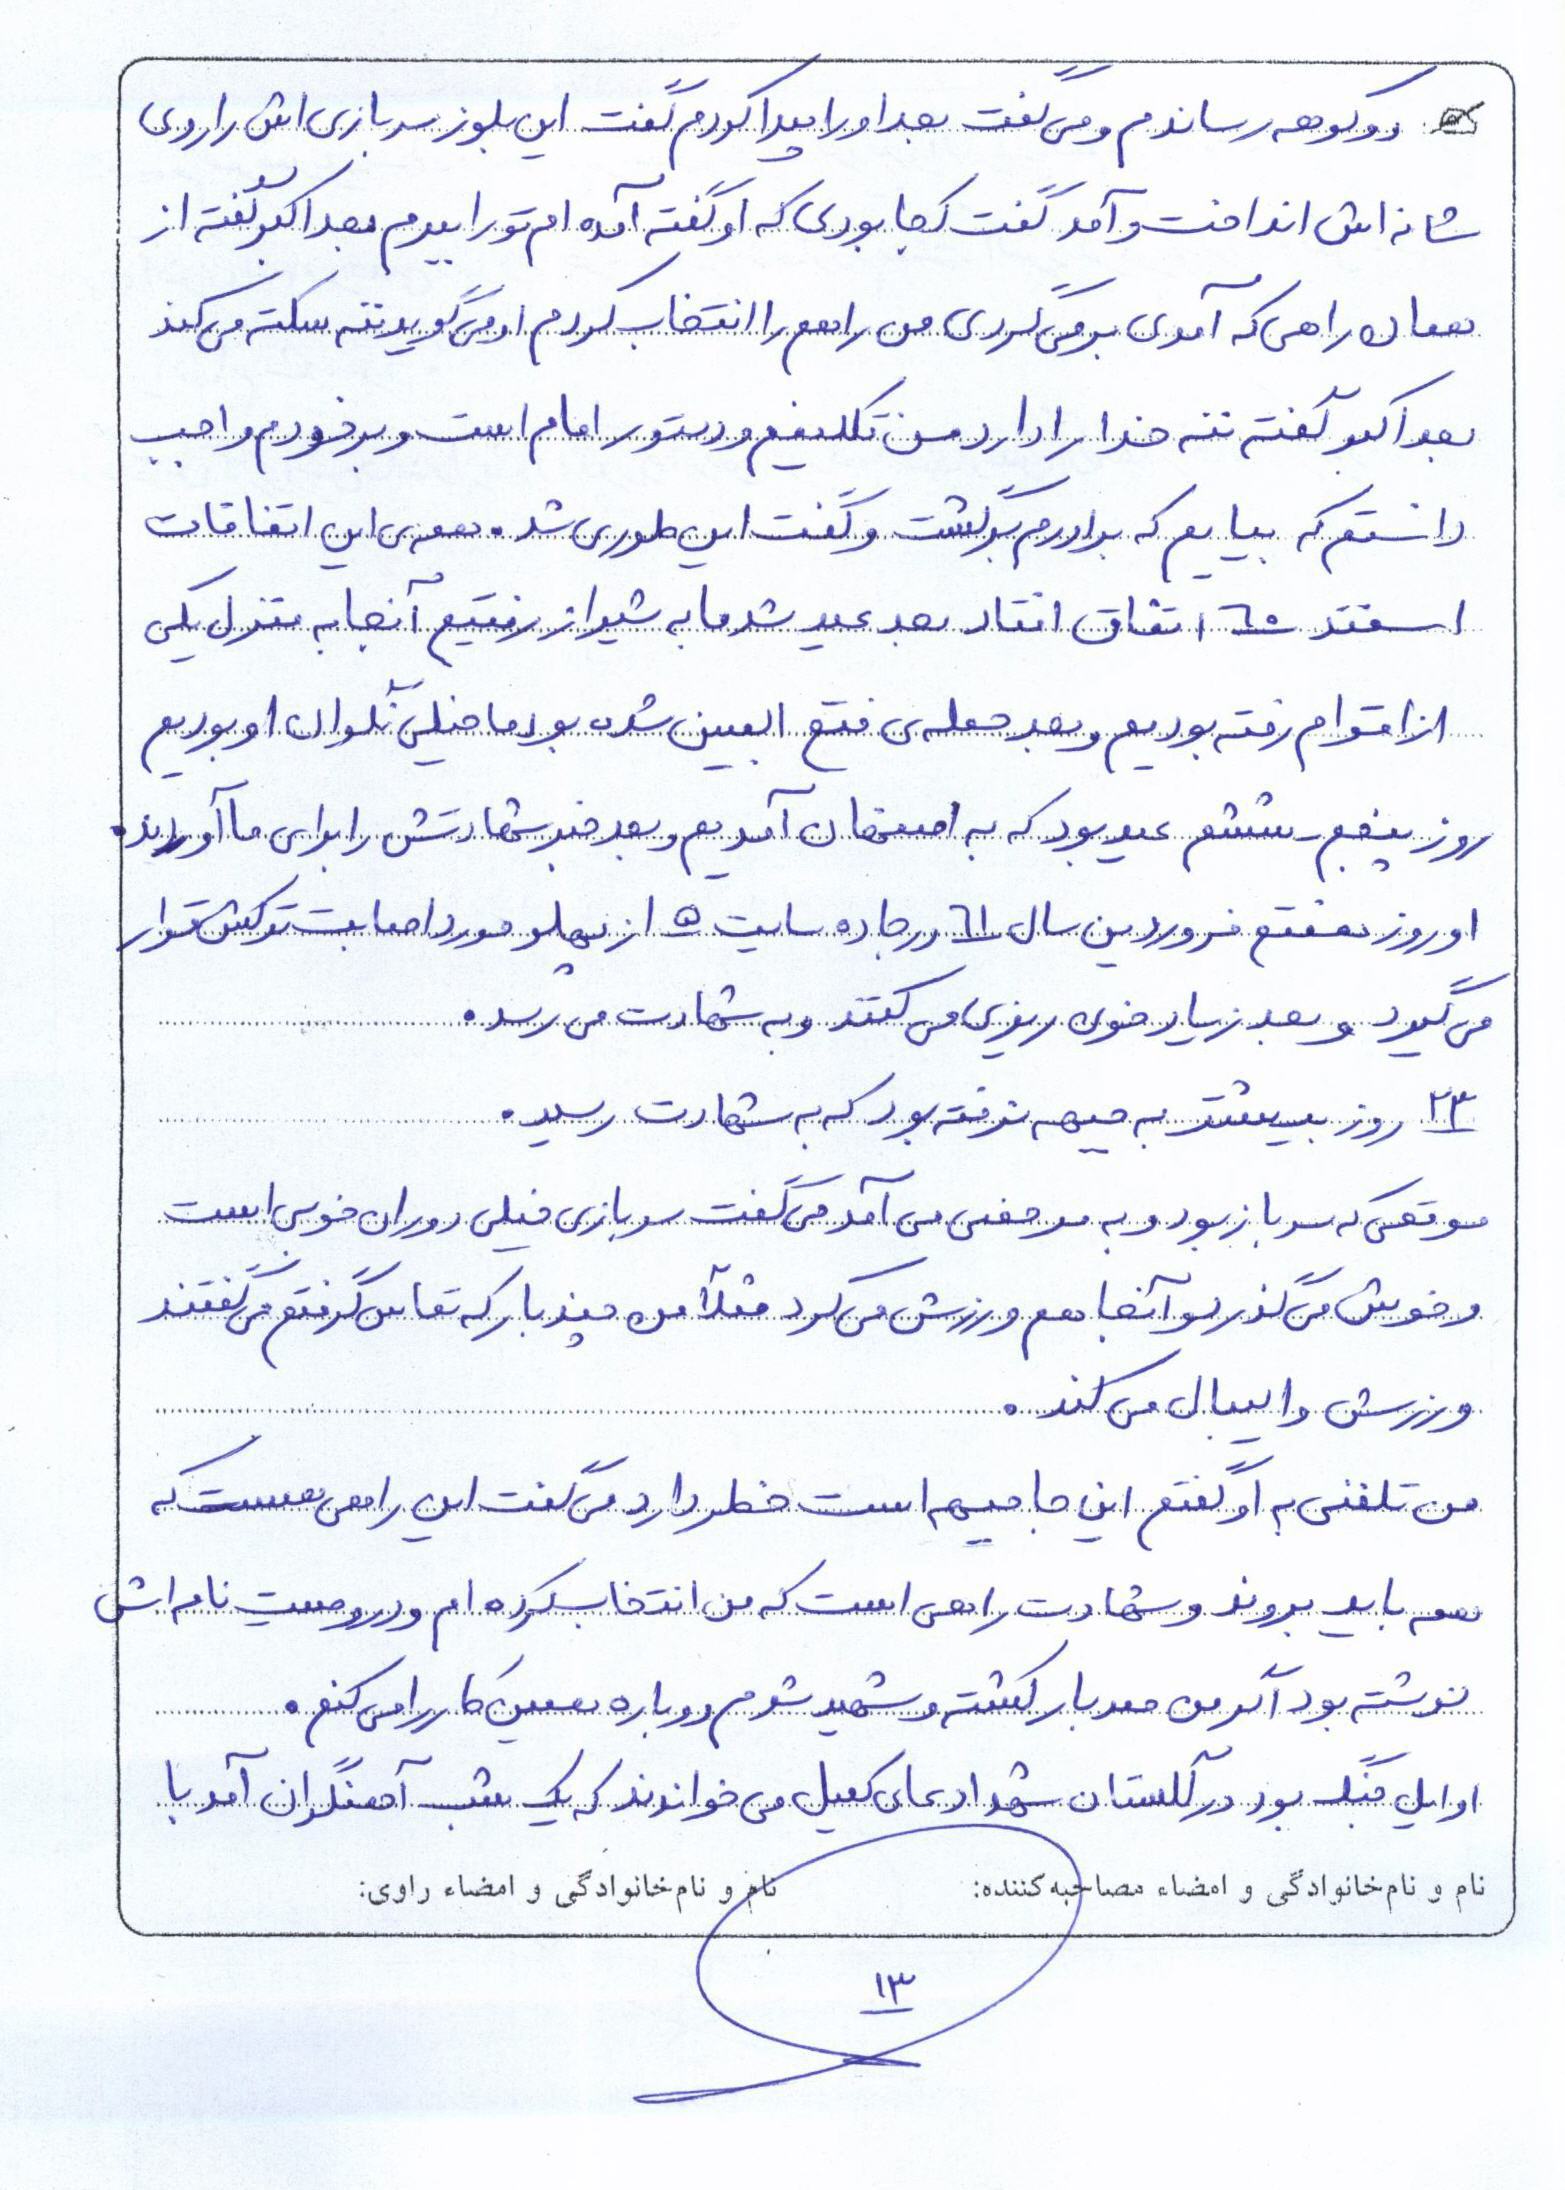 دوکوهه رساندم و می گفت بعد او را پیدا کردم گفت این بلوز سربازی اش را روی
شانه اش انداخت و آمد گفت کجا بودی که او گفته آمده ام تو را ببرم بعد اکبر گفته از
همان راهی که آمدی برمی گردی من راهم را انتخاب کردم او می گوید ننه سکته می کند
بعد اکبر گفته ننه خدا را دارد من تکلیفم و دستور امام است و بر خودم واجب
دانستم که بیایم که برادرم برگشت و گفت این طوری شد. همه ی این اتفاقات
اسفند ٦٠ اتفاق افتاد بعد عید شد ما به شیراز رفتیم آنجا به منزل یکی
از اقوام رفته بودیم و بعد حمله ی فتح المبین شده بود ما خیلی نگران او بودیم
روز پنجم - ششم عید بود که به اصفهان آمدیم و بعد خبر شهادتش را برای ما آوردند.
او روز هفتم فروردین سال ٦١ در جاده سایت ۵ از پهلو مورد اصابت ترکش قرار
می گیرد و بعد زیاد خون ریزی می کند و به شهادت می رسد.
۲۳ روز بیشتر به جبهه نرفته بود که به شهادت رسید.
موقعی که سرباز بود و به مرخصی می آمد می گفت سربازی خیلی دوران خوبی است
و خوش می گذرد و آنجا هم ورزش می کرد مثلاً من چند بار که تماس گرفتم می گفتند
ورزش والیبال می کند.
من تلفنی به او گفتم این جا جبهه است خطر دارد می گفت این راهی هست که
همه باید بروند و شهادت راهی است که من انتخاب کرده ام و در وصیت نامه اش
نوشته بود اگر من صد بار کشته و شهید شوم دوباره همین کار را می کنم.
اوایل جنگ بود در گلستان شهدا دعای کمیل می خواندند که یک شب آهنگران آمد با
نام و نام خانوادگی و امضاء مصاحبه کننده: نام و نام خانوادگی و امضاء راوی:
۱۳